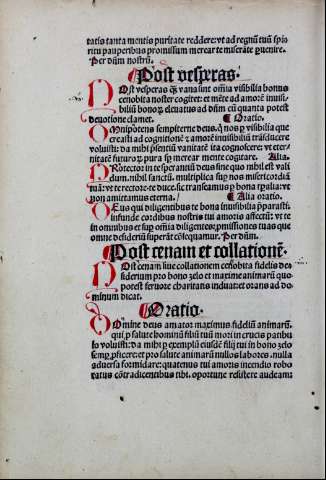 ratis tanta mentis puritate reddere: vt ad regnũ tuũ spiri
tu pauperibus promissum merear te miserãte puenire.
Per dñm nostrũ.
Post vesperas.
Post vesperas q̃ vana sint omnia visibilia bonus
cenobita noster cogitet: et mẽte ad amorẽ inuisi
biliũ bonoꝝ eleuatus ad dñm cũ quanta potest
deuotione clamet. Oratio.
Omnipotens sempiterne deus. q̃ nos p visibilia que
creasti ad cognitionẽ ⁊ amorẽ inuisibiliũ trãsducere
voluisti: da mihi p̃sentiũ vanitatẽ ita cognoscere: vt eter
nitatẽ futuroꝝ pura sp mereat mente cogitare. Alia.
Protector in te sperantiũ deus sine quo nihil est vali
dum. nihil sanctũ. multiplica sup nos misericordiã
tuã: vt te rectore: te duce. sic transeamus p bona tp̃alia: vt
non amittamus eterna. Alia oratio.
Deus qui diligentibus te bona inuisibilia p̃parasti:
infunde cordibus nostris tui amoris affectũ: vt te
in omnibus et sup omĩa diligentes: pmissiones tuas que
omne desideriũ superãt cõsequamur. Per dñm.
Post cenam et collationẽ.
Post cenam siue collationem cenobita fidelis de-
siderium pro bono zelo et maxime animarũ quo
potest feruore charitatis induat: et orans ad do
minum dicat.
Oratio.
Domine deus amator maximus fidelĩu animarũ.
qui p salute hominũ filiũ tuũ mori in crucis patibu
lo voluisti: da mihi p exemplũ eiusdẽ filij tui in bono zelo
semp pficere: et pro salute animarũ nullos labores. nulla
aduersa formidare: quatenus tui amoris incendio robo
ratus cõtradicentibus tibi. oportune resistere audeam: